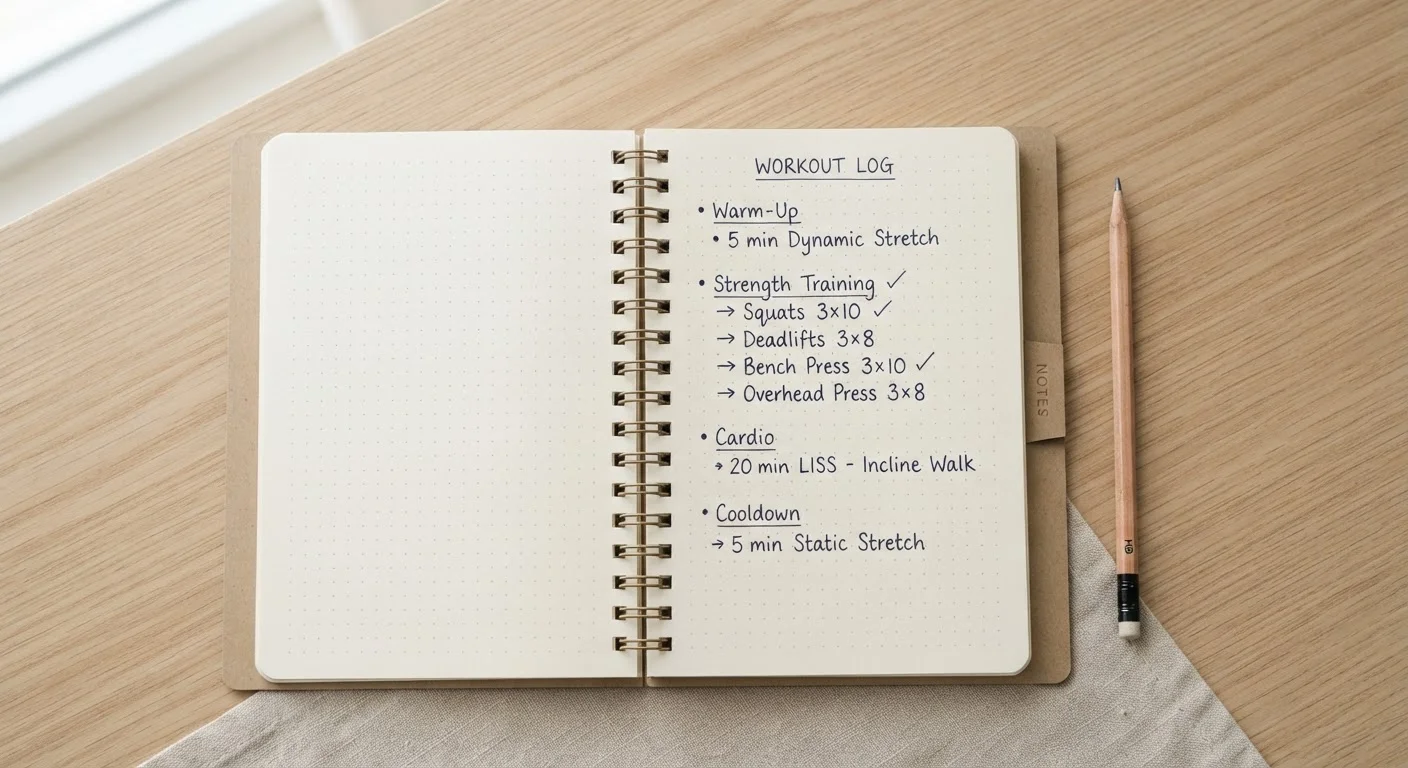 WORKOUT LOG
• Warm-Up
• 5 min Dynamic Stretch
• Strength Training ✓
→ Squats 3×10 ✓
→ Deadlifts 3×8
→ Bench Press 3×10 ✓
→ Overhead Press 3×8
• Cardio
→ 20 min LISS - Incline Walk
• Cooldown
→ 5 min Static Stretch
NOTES
HB